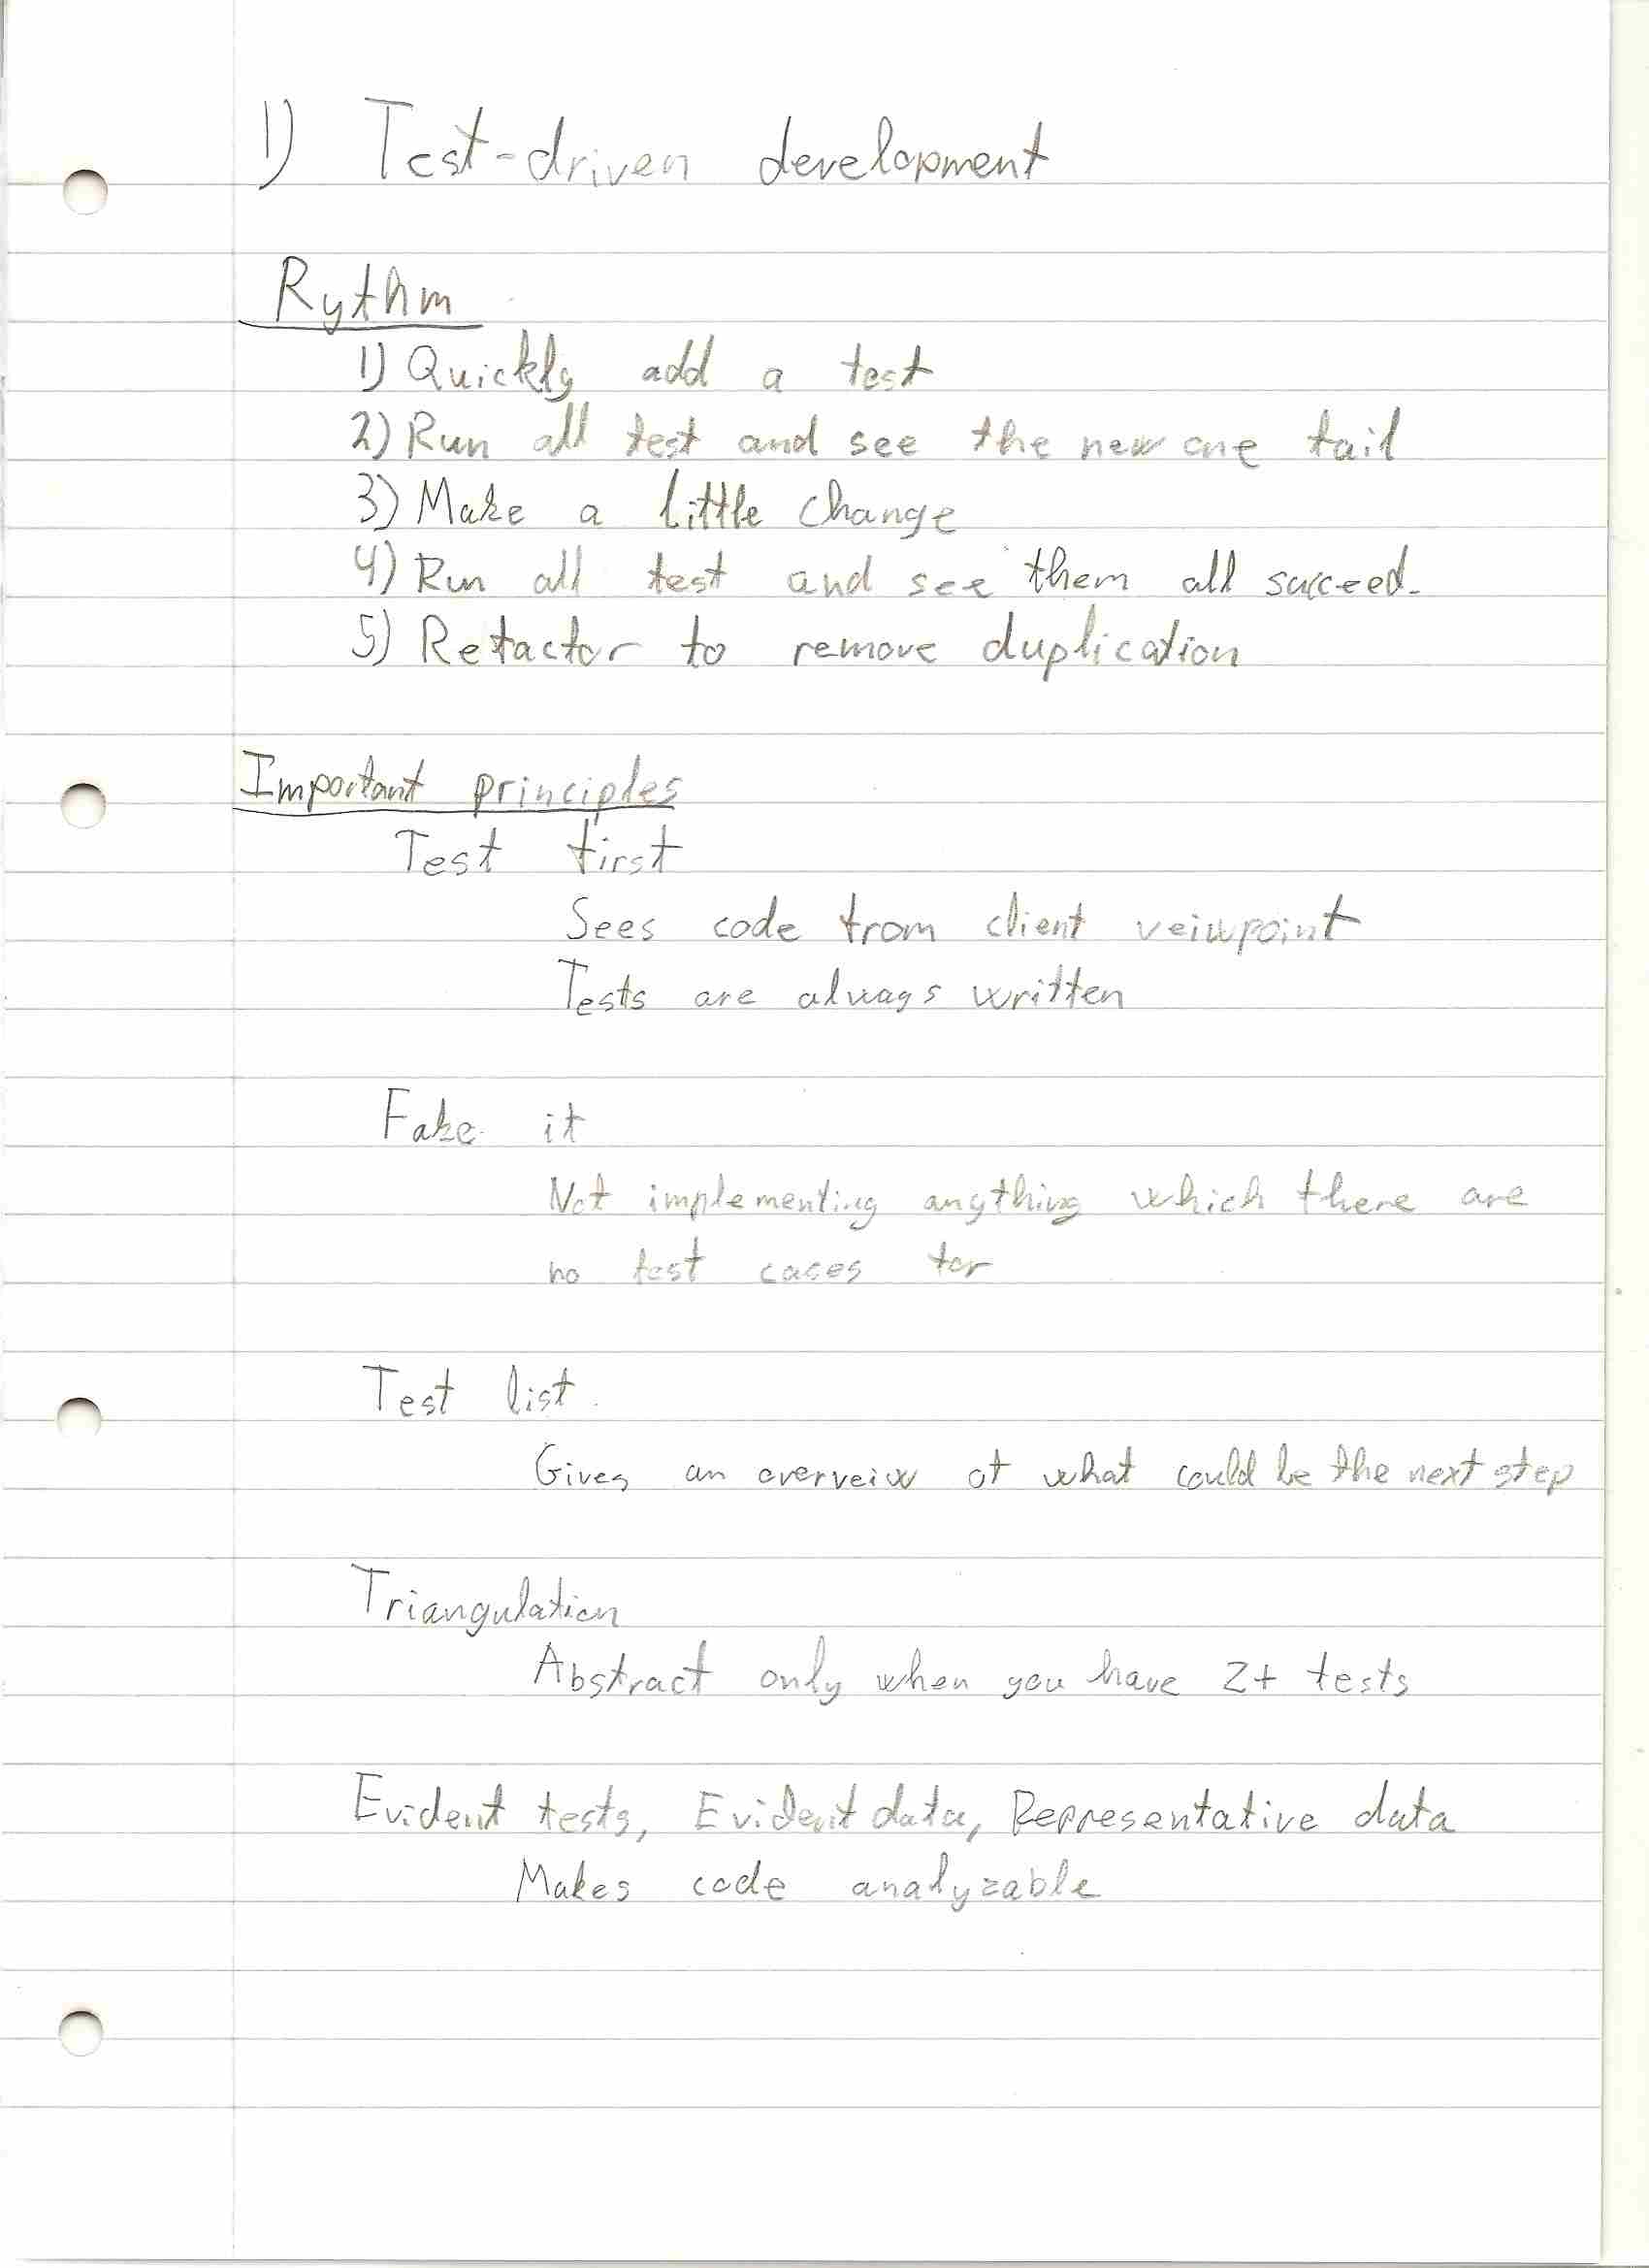 1) Test-driven development
Rythm
1) Quickly add a test
2) Run all test and see the new one fail
3) Make a little change
4) Run all test and see them all succeed.
5) Refactor to remove duplication
Important principles
Test first
Sees code from client veiwpoint
Tests are always written
Fake it
Not implementing anything which there are
no test cases for
Test list
Gives an overveiw of what could be the next step
Triangulation
Abstract only when you have 2+ tests
Evident tests, Evident data, Representative data
Makes code analyzable